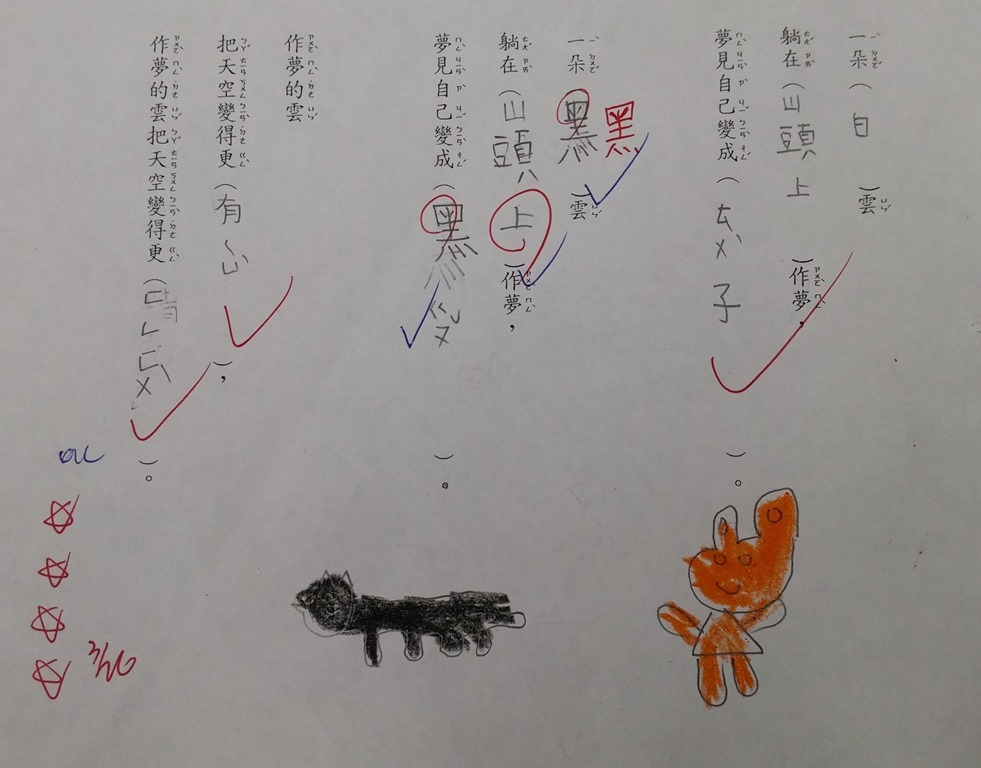 一朵（白）雲
躺在（山頭上）作夢，
夢見自己變成（ㄊㄨˋ子）。
黑
一朵 黑）雲
躺在（山頭上）作夢，
夢見自己變成（黑ㄍㄡˇ）。
作夢的雲
把天空變得更（有），
作夢的雲把天空變得更（）。
3/26